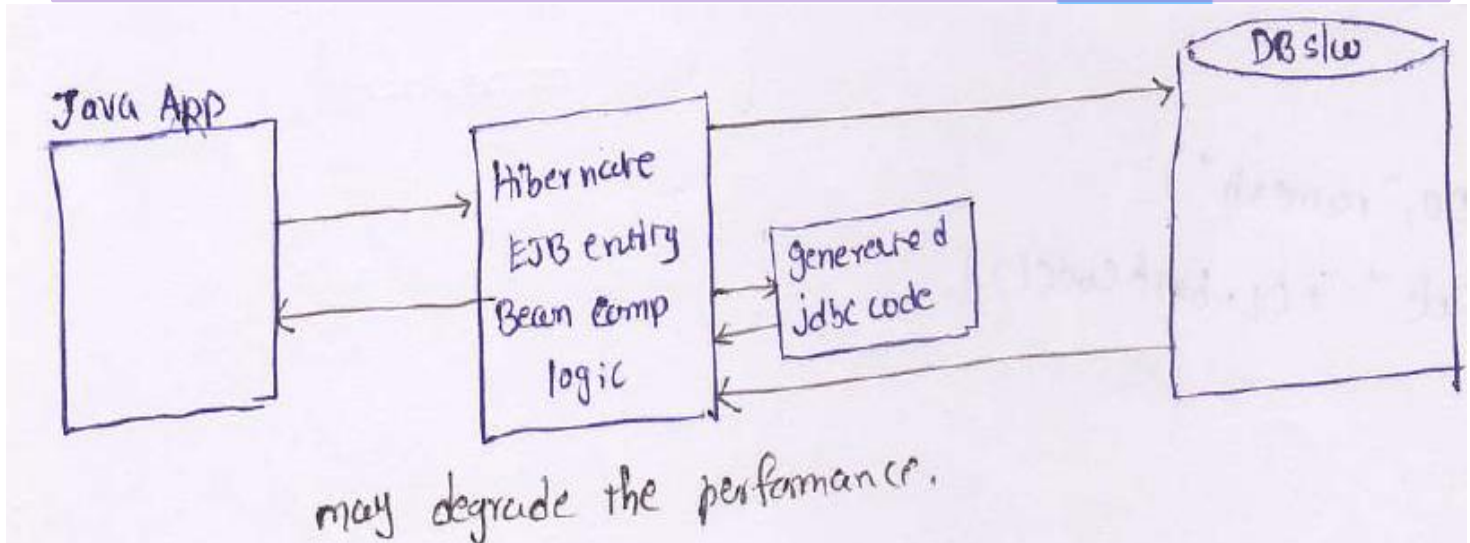 Java App
DB s/w
Hibernate
EJB entity
Bean comp
logic
generated
jdbc code
may degrade the performance.